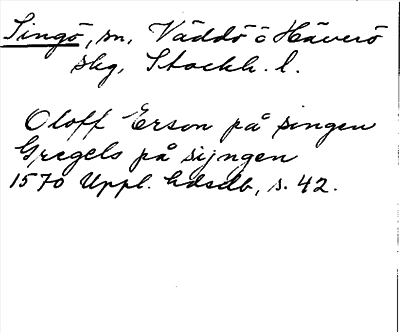 Singö, sn, Väddö o Häverö
skg, Stockh. l.
Oloff Erson på singen
Gregels på sijngen
1570 Uppl. hdsdb, s. 42.